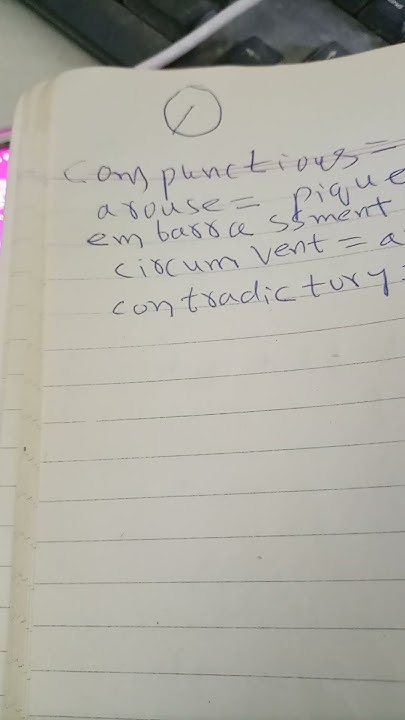 compunctious =
arouse = pique
embarrassment
circumvent = a
contradictury =